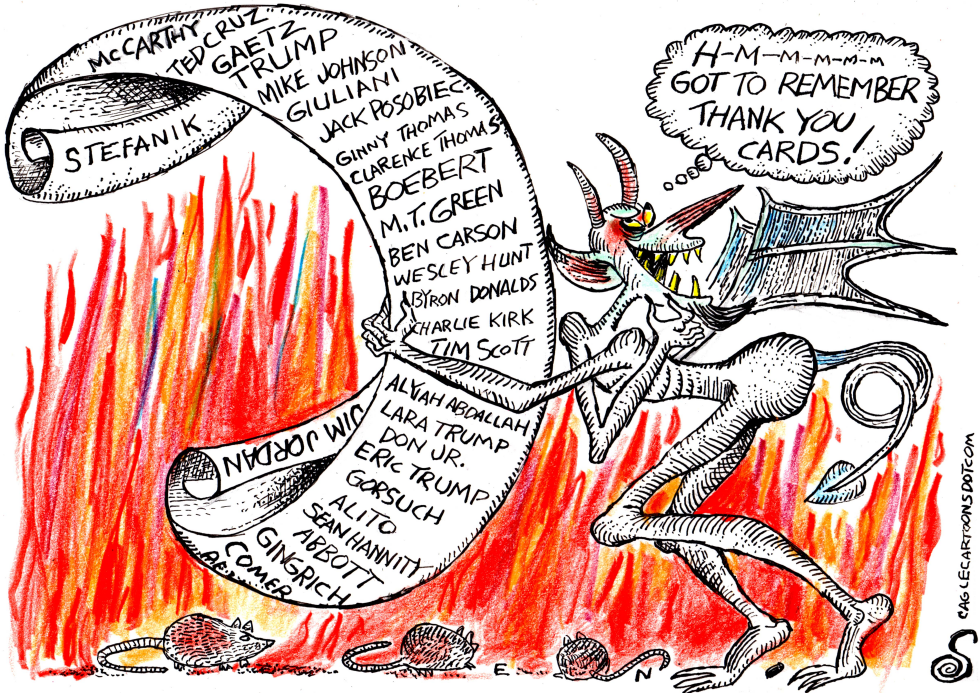 H-M-M-M-M-M
GOT TO REMEMBER
THANK YOU
CARDS!
STEFANIK
McCARTHY
TED CRUZ
GAETZ
TRUMP
MIKE JOHNSON
GIULIANI
JACK POSOBIEC
GINNY THOMAS
CLARENCE THOMAS
BOEBERT
M.T. GREEN
BEN CARSON
WESLEY HUNT
BYRON DONALDS
CHARLIE KIRK
TIM SCOTT
ALYAH ABDALLAH
LARA TRUMP
DON JR.
ERIC TRUMP
GORSUCH
ALITO
SEAN HANNITY
ABBOTT
GINGRICH
COMER
JIM JORDAN
E N
CAGLECARTOONSDOTCOM